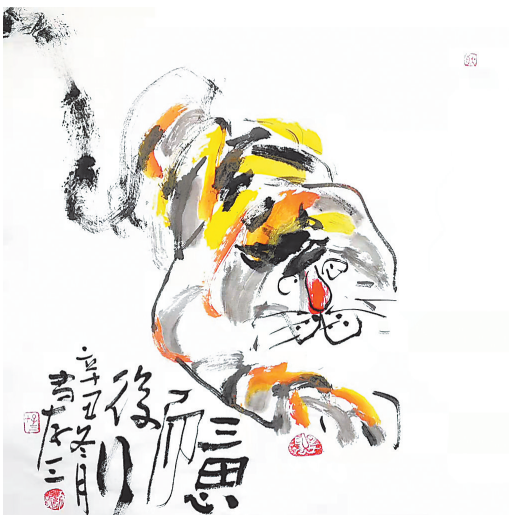 三思
而
後行
辛丑冬月